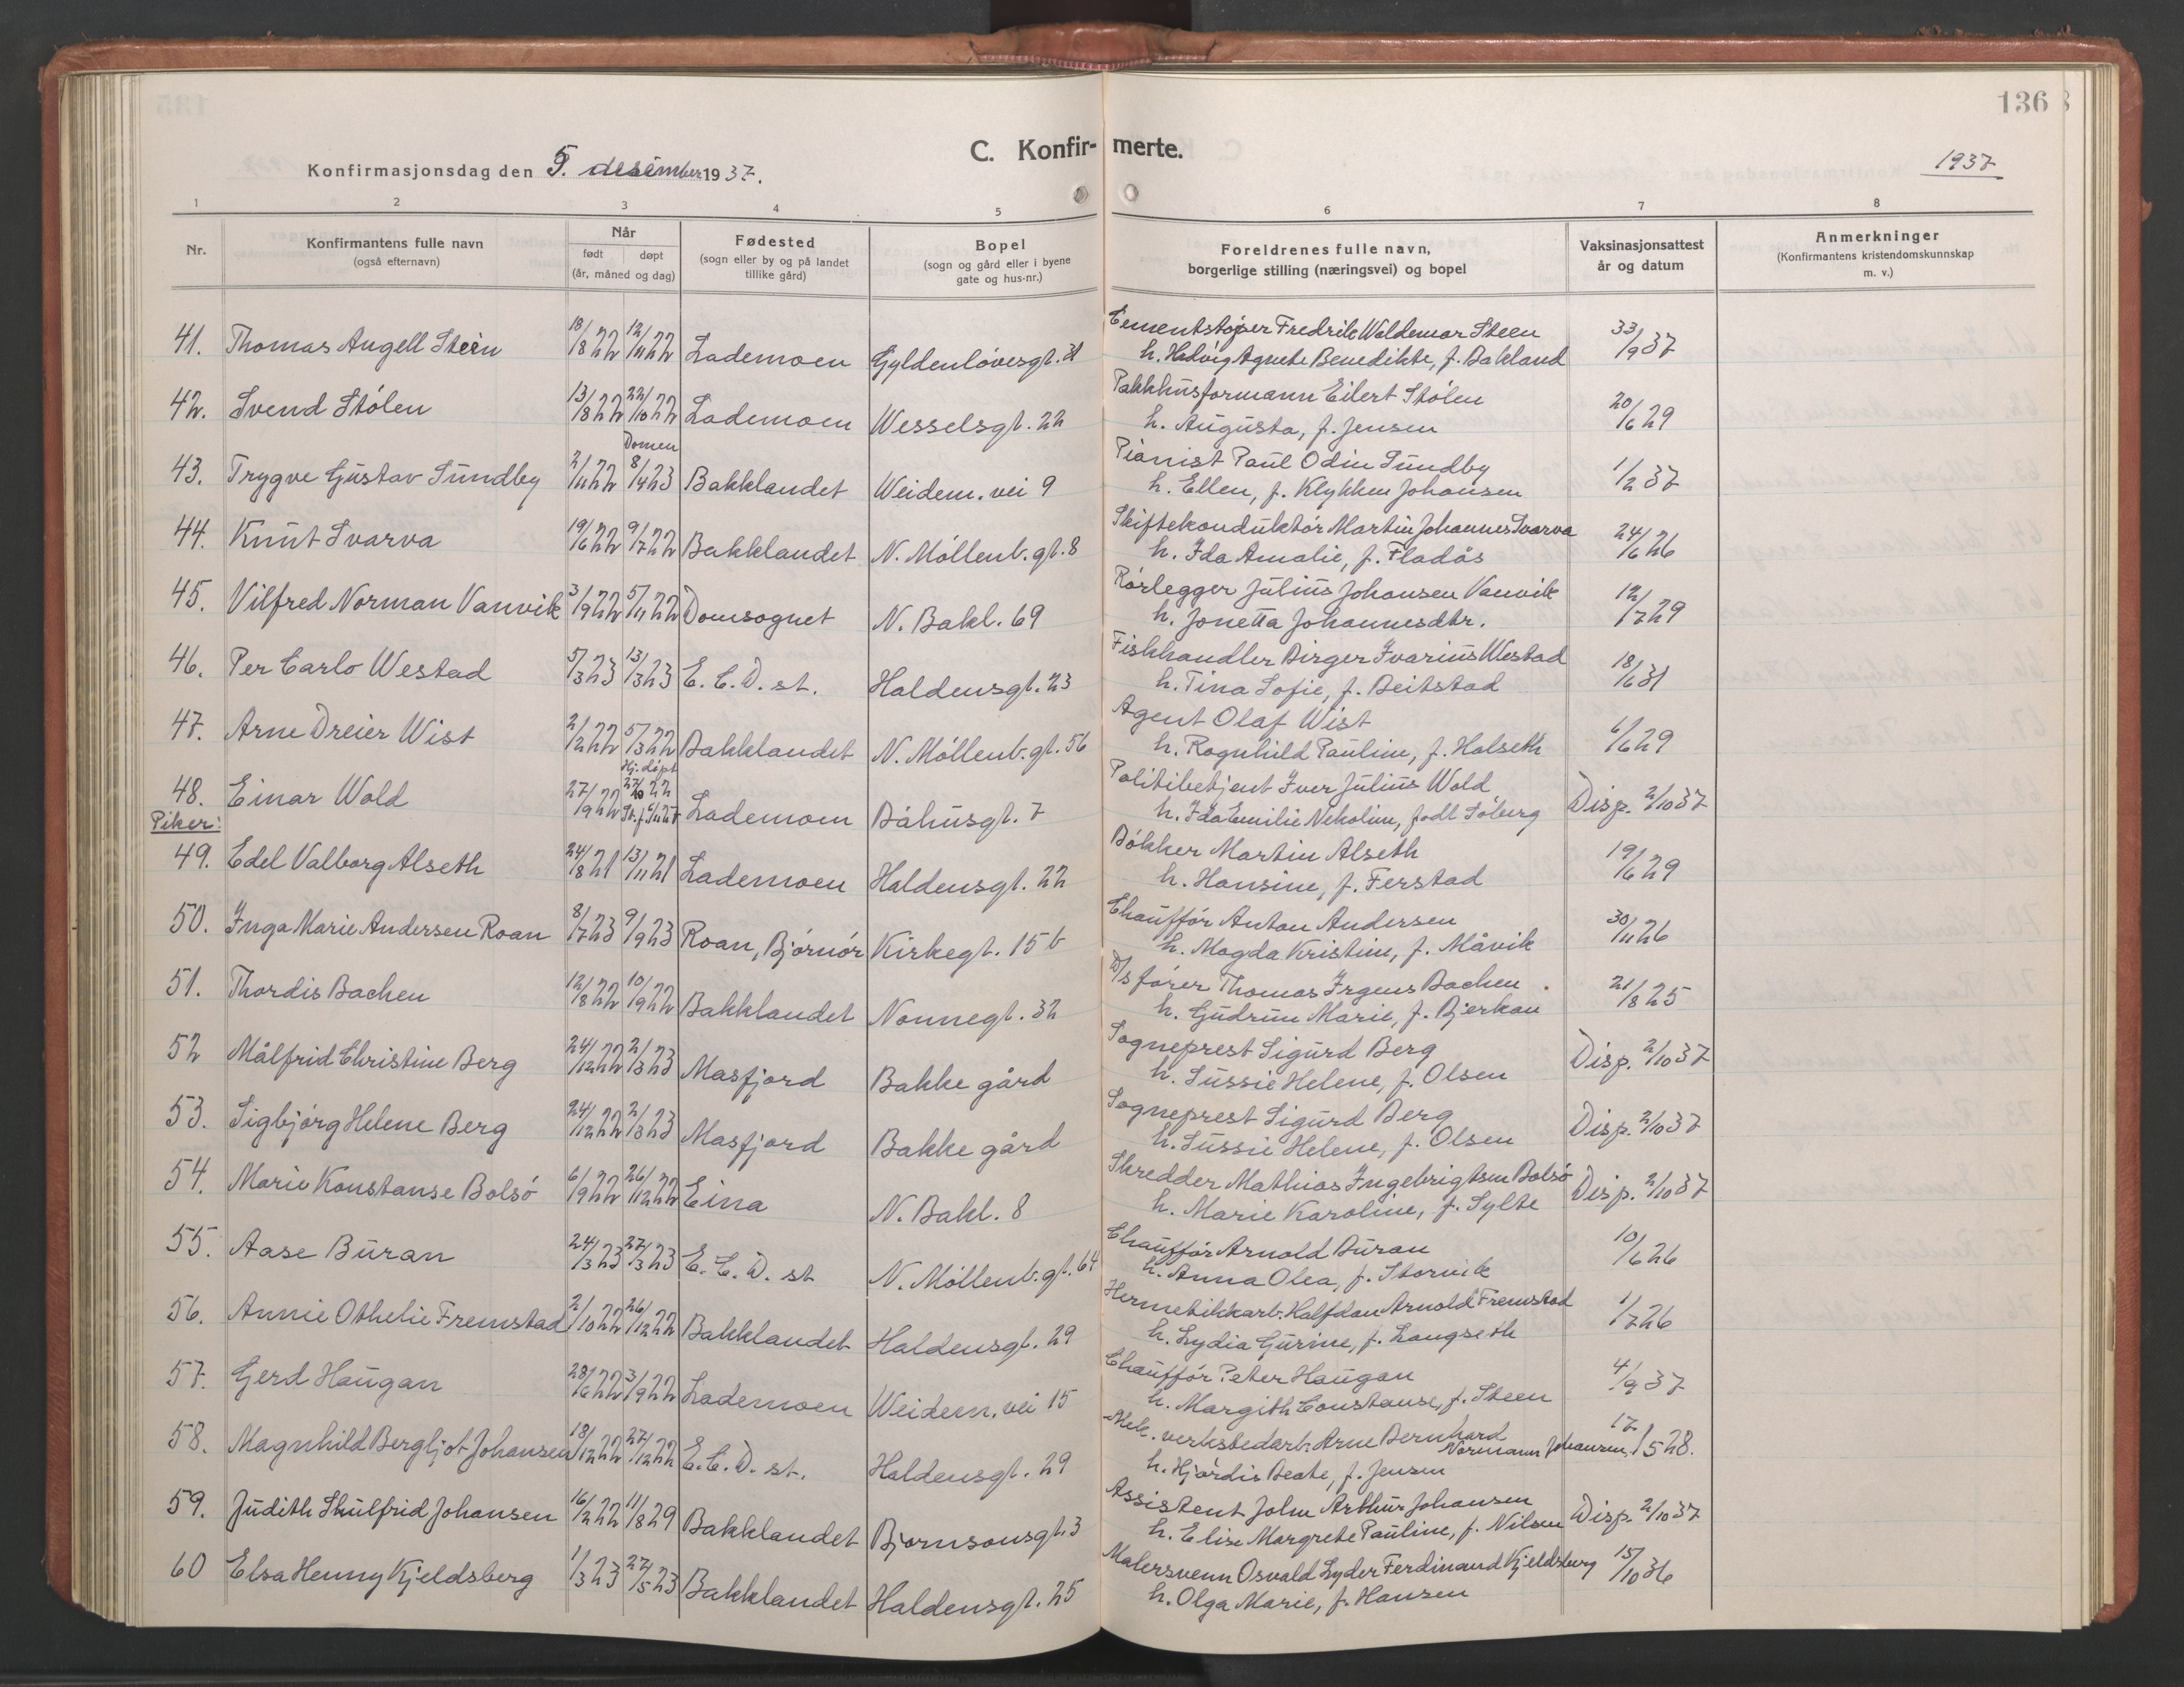 136
C. Konfir- merte.
Konfirmasjonsdag den 5. desember 1937.
1937
1 2 3 4 5 6 7 8
Nr.
Konfirmantens fulle navn
(også efternavn)
Når
født døpt
(år, måned og dag)
Fødested
(sogn eller by og på landet
tillike gård)
Bopel
(sogn og gård eller i byene
gate og hus-nr.)
Foreldrenes fulle navn,
borgerlige stilling (næringsvei) og bopel
Vaksinasjonsattest
år og datum
Anmerkninger
(Konfirmantens kristendomskunnskap
m. v.)
41. Thomas Angell Steen 18/8 22 12/11 22 Lademoen Gyldenløvesgt. 31 Cementstøper Fredrik Waldemar Steen /9 37
h. Hedvig Agnete Benedikte, f. Bakland
42. Svend Stølen 13/8 22 22/10 22 Lademoen Wesselsgt. 22 Pakkhusformann Eilert Stølen 20/6 29
h. Augusta, f. Jensen
43. Trygve Gustav Sundby 2/11 22 Domen 8/4 23 Bakklandet Weidem. vei 9 Pianist Paul Odin Sundby 1/2 37
h. Ellen, f. Klykken Johansen
44. Knut Svarva 19/6 22 9/7 22 Bakklandet N. Møllenb. gt. 8 Skiftekonduktør Martin Johannes Svarva 24/6 26
h. Ida Amalie, f. Fladås
45. Vilfred Norman Vanvik 3/9 22 5/11 22 Domsognet N. Bakl. 69 Rørlegger Julius Johansen Vanvik 12/7 29
h. Jonetta Johannesdtr.
46. Per Carlo Westad 5/3 23 13/3 23 E. C. D. st. Haldensgt. 23 Fiskhandler Birger Ivarius Westad 18/6 31
h. Tina Sofie, f. Beitstad
47. Arne Dreier Wist 2/2 22 5/3 22 Bakklandet N. Møllenb. gt. 56 Agent Olaf Wist 6/6 29
h. Ragnhild Pauline, f. Halseth
48. Einar Wold 27/9 22 Hj. døpt 27/10 22 Lademoen Båhusgt. 7 Politibetjent Iver Julius Wold Disp. 2/10 37
h. Ida Emilie Nekoline, født Søberg
Piker:
49. Edel Valborg Alseth 24/8 21 13/11 21 Lademoen Haldensgt. 22 Bøkker Martin Alseth 19/6 29
h. Hansine, f. Ferstad
50. Inga Marie Andersen Roan 8/7 23 9/9 23 Roan, Bjørnør Kirkegt. 15 b Chauffør Anton Andersen 30/11 26
h. Magda Kristine, f. Måvik
51. Thordis Bachen 12/8 22 10/9 22 Bakklandet Nonnegt. 32 D/s fører Thomas Irgens Bachen 21/8 25
h. Gudrun Marie, f. Bjerkan
52 Målfrid Christine Berg 24/12 22 2/3 23 Masfjord Bakke gård Sogneprest Sigurd Berg Disp. 2/10 37
h. Sussie Helene, f. Olsen
53. Sigbjørg Helene Berg 24/12 22 2/3 23 Masfjord Bakke gård Sogneprest Sigurd Berg Disp. 2/10 37
h. Sussie Helene, f. Olsen
54. Marie Konstanse Bolsø 6/9 22 26/12 22 Eina N. Bakl. 8 Skredder Mathias Ingebrigtsen Bolsø Disp. 2/10 37
h. Marie Karoline, f. Sylte
55. Aase Buran 24/3 23 27/3 23 E. C. D. st N. Møllenb. gt. 64 Chauffør Arnold Buran 10/6 26
h. Anna Olea, f. Storvik
56. Annie Othelie Fremstad 2/10 22 26/12 22 Bakklandet Haldensgt. 29 Hermetikkarb. Halfdan Arnold Fremstad 1/7 26
h. Lydia Gurine, f. Langseth
57. Gerd Haugan 28/6 22 3/9 22 Lademoen Weidem. vei 15 Chauffør Peter Haugan 4/9 37
h. Margith Constanse, f. Steen
58. Magnhild Bergljot Johansen 18/12 22 27/12 22 E. C. D. st. Haldensgt. 29 Mek. verkstedarb. Arne Bernhard Normann Johansen 17/5 28.
h. Hjørdis Beate, f. Jensen
59. Judith Skulfrid Johansen 16/2 22 11/8 29 Bakklandet Bjørnsonsgt. 3 Assistent John Arthur Johansen Disp. 2/10 37
h. Elise Margrete Pauline, f. Nilsen
60 Elsa Henny Kjeldsberg 1/3 23 27/5 23 Bakklandet Haldensgt. 25 Malersvenn Osvald Lyder Ferdinand Kjeldsberg 15/10 36
h. Olga Marie, f. Hansen